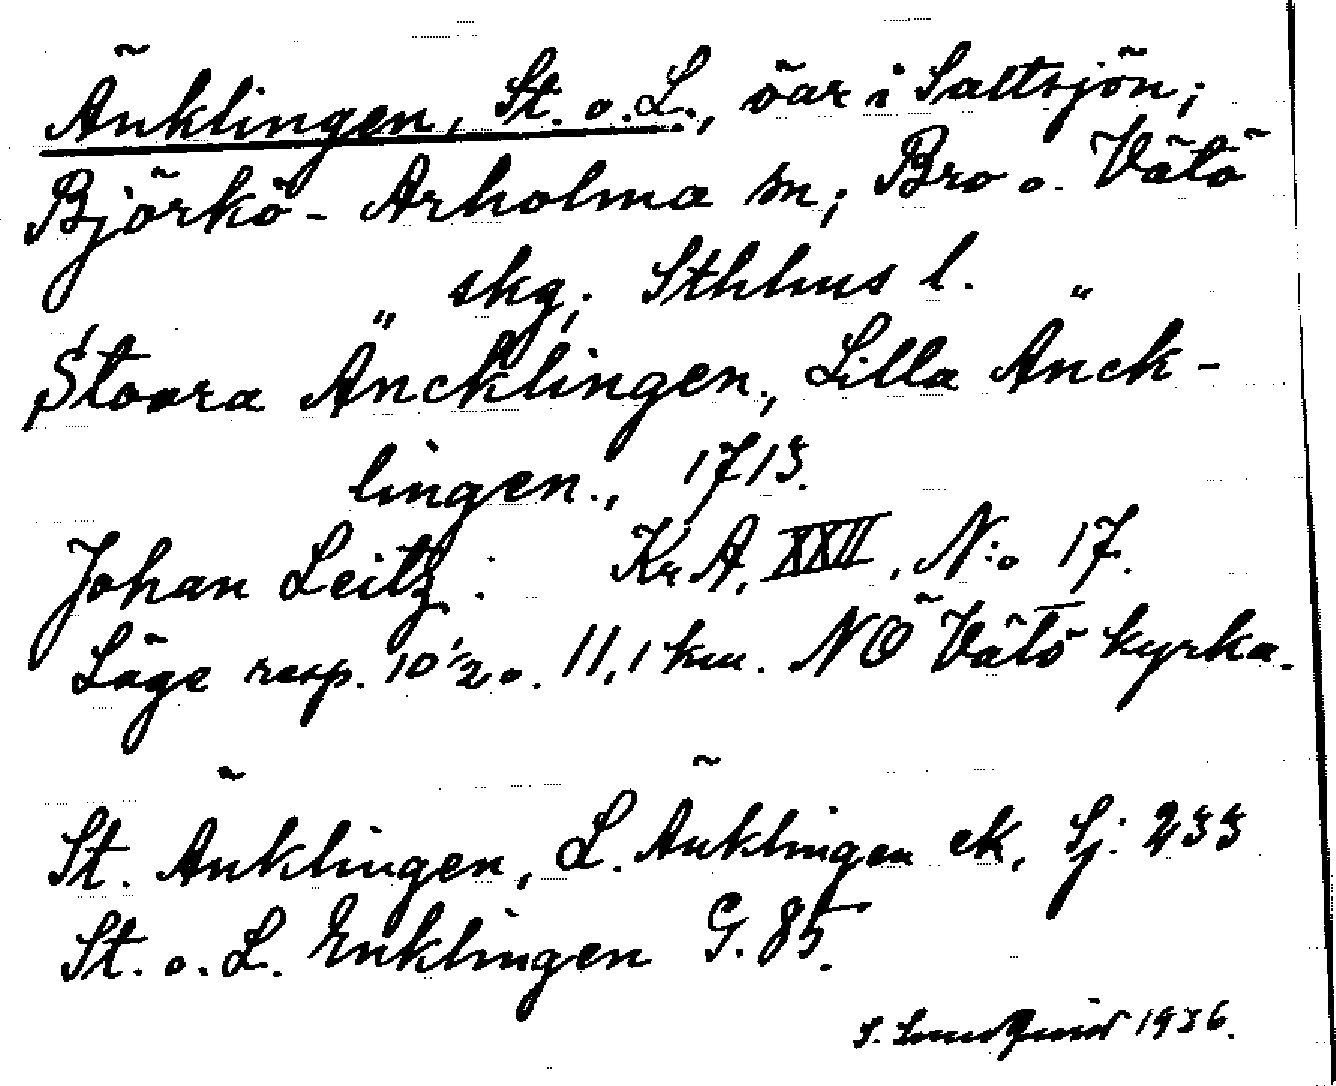 Änklingen, St. o. L., öar i Saltsjön;
Björkö-Arholma sn; Bro o. Vätö
" skg; Sthlms l. "
Stoora Äncklingen, Lilla Änck-
lingen., 1713.
Johan Leitz: Kr A, XXII, N:o 17.
Läge resp. 10 1/2 o. 11,1 km. NÖ Vätö kyrka.
St. Änklingen, L. Änklingen ek. Sj: 233
St. o. L. Enklingen G. 85.
S. Lundqvist 1936.